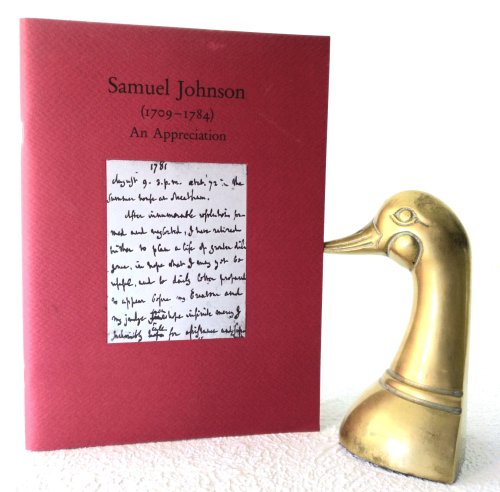 Samuel Johnson
(1709–1784)
An Appreciation
1781
August 9. 3. p.m. in the
Summer house at Streatham.
After innumerable resolutions for
med and neglected, I have retired
hither to plan a life of greater dili
gence, in hope that I may yet be
useful, and be daily better prepared
to appear before my Creatour and
my judge from whose infinite mercy I
humbly call for assistance and